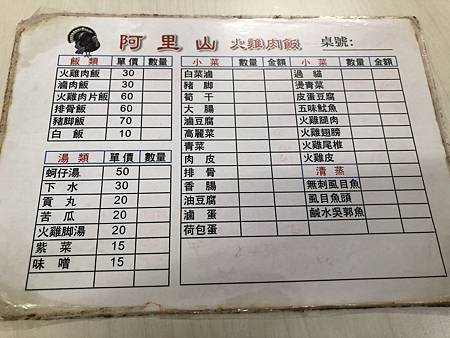 阿里山 火雞肉飯 桌號:
飯類 單價 數量
火雞肉飯 30
滷肉飯 30
火雞肉片飯 60
排骨飯 60
豬脚飯 70
白飯 10
湯類 單價 數量
蚵仔湯 50
下水 30
貢丸 20
苦瓜 20
火雞脚湯 20
紫菜 15
味噌 15
小菜 數量 金額
白菜滷
豬脚
筍干
大腸
滷豆腐
高麗菜
青菜
肉皮
排骨
香腸
油豆腐
滷蛋
荷包蛋
小菜 數量 金額
過貓
燙青菜
皮蛋豆腐
五味魷魚
火雞腿肉
火雞翅膀
火雞尾椎
火雞皮
清蒸
無刺虱目魚
虱目魚頭
鹹水吳郭魚